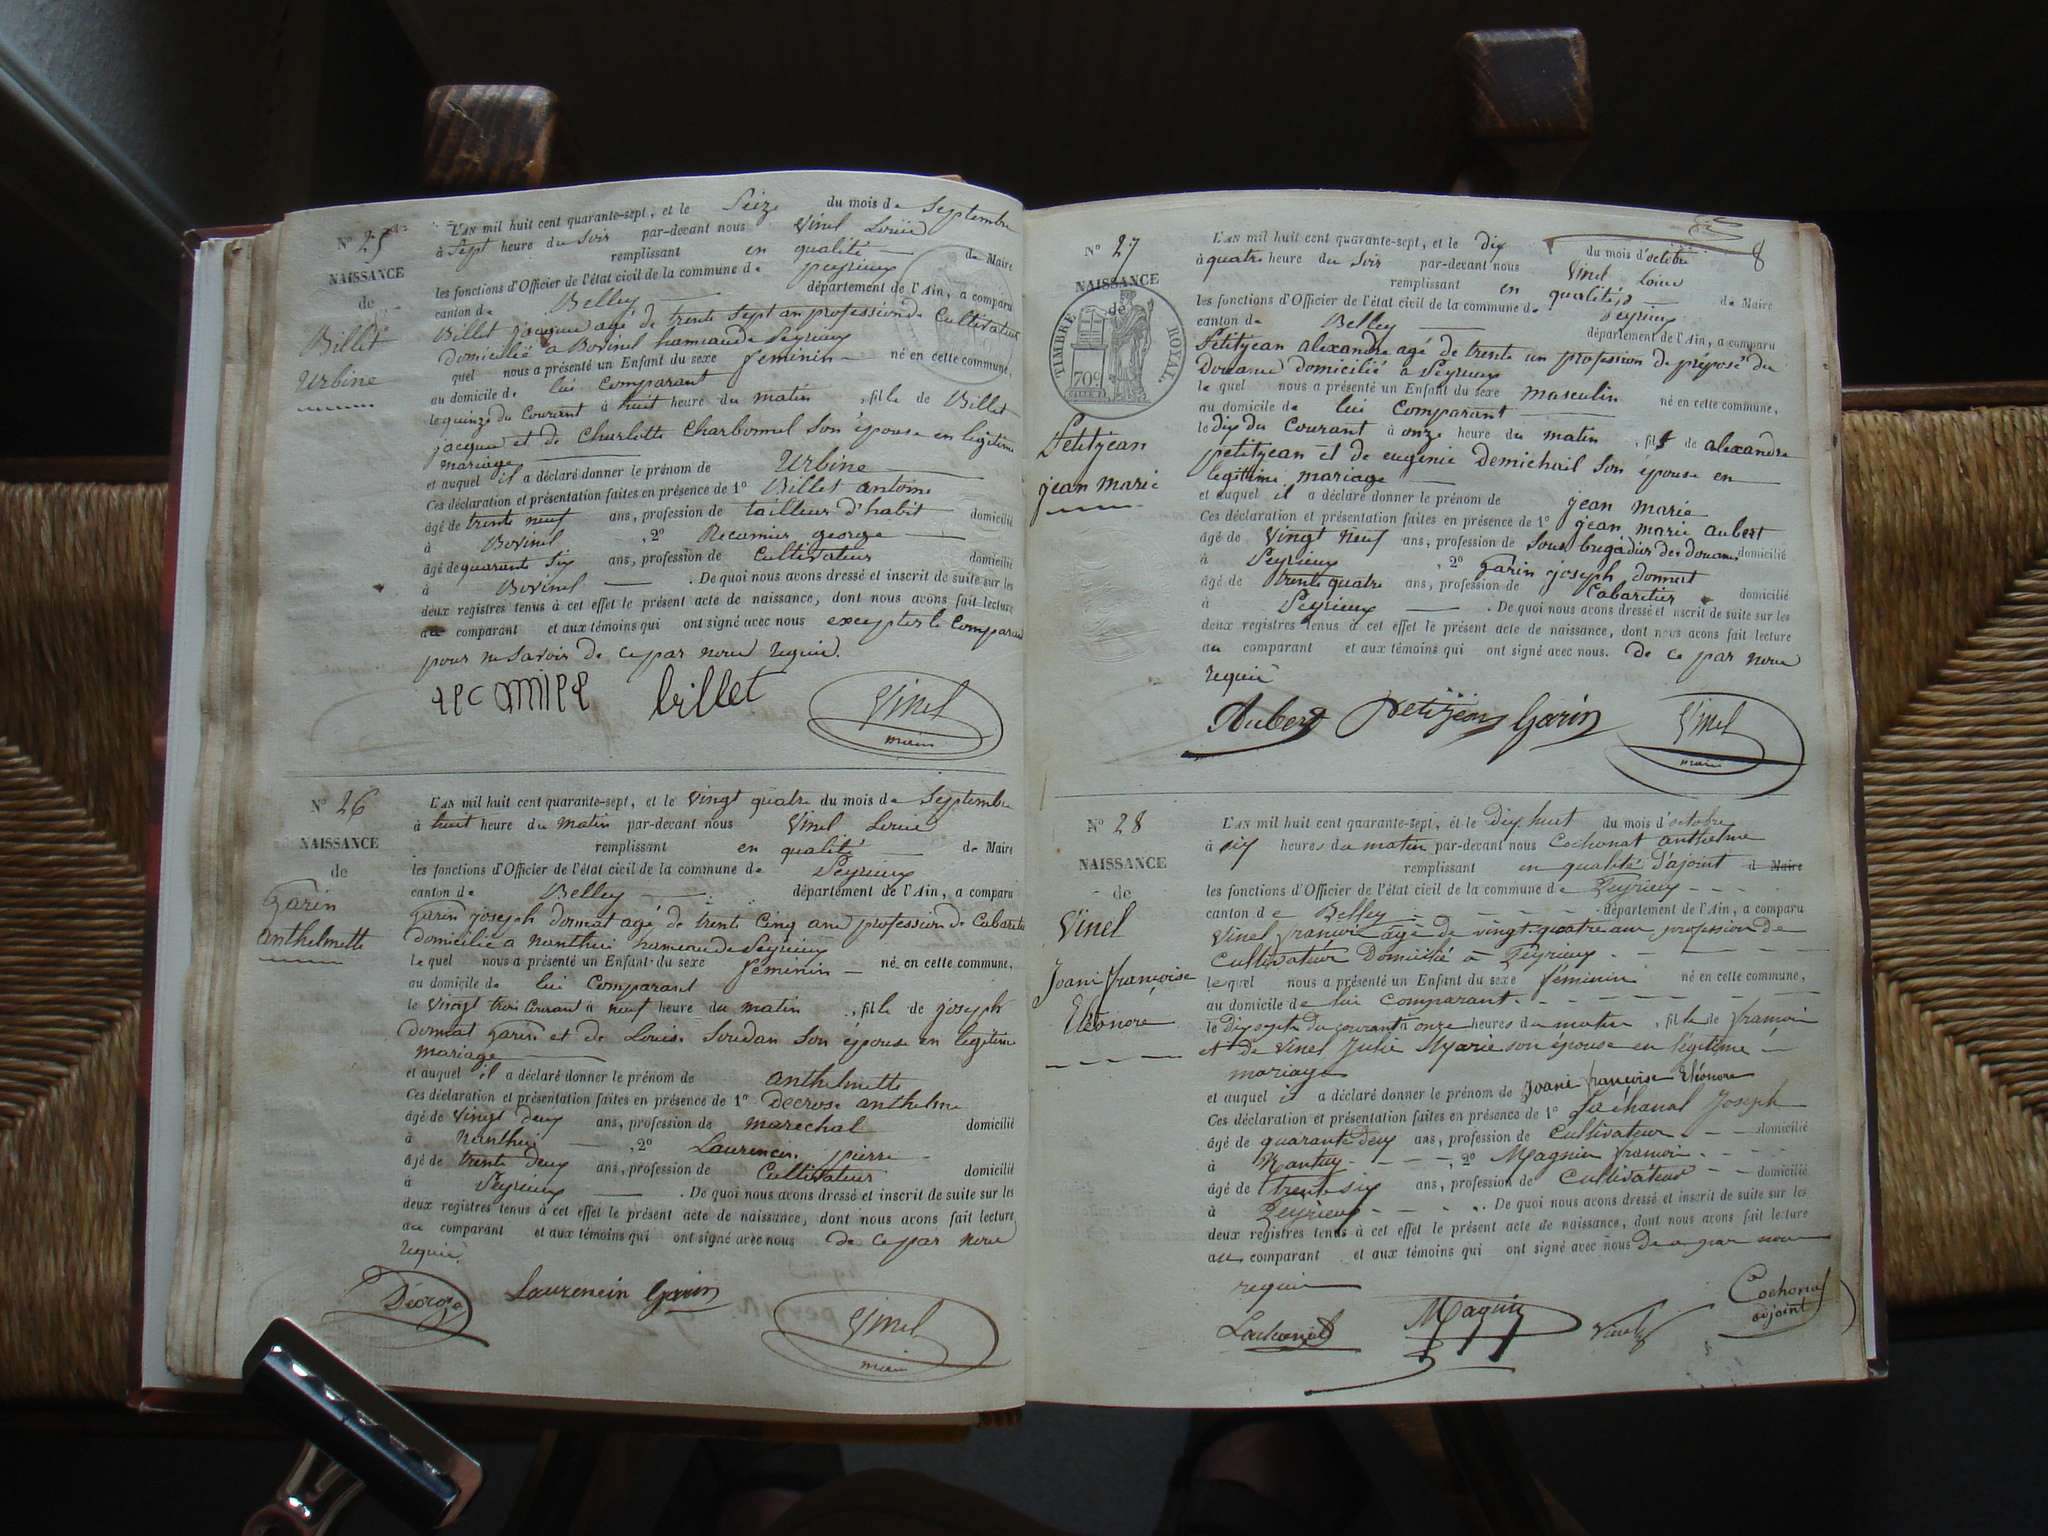 N° 25
NAISSANCE
de
Billet
Urbine
L'AN mil huit cent quarante-sept, et le Seize du mois de Septembre
à Sept heure du Soir par-devant nous Vinel Louis
remplissant en qualité de Maire
les fonctions d'Officier de l'état civil de la commune de peyrieux
canton de Belley département de l'Ain, a comparu
Billet jacque agé de trente Sept an profession de Cultivateur
domicilié a Bovinel hamau de Peyrieux
quel nous a présenté un Enfant du sexe féminin né en cette commune,
au domicile de lui comparant
le quinze du Courant à huit heure du matin, fille de Billet
jacque et de Charlotte Charbonnel Son épouse en legitime
mariage
et auquel il a déclaré donner le prénom de Urbine
Ces déclaration et présentation faites en présence de 1° Billet antoine
âgé de trente neuf ans, profession de tailleur d'habit domicilié
à Bovinel, 2° Recamier george
âgé de quarante Six ans, profession de Cultivateur domicilié
à Bovinel. De quoi nous avons dressé et inscrit de suite sur les
deux registres tenus à cet effet le présent acte de naissance, dont nous avons fait lecture
au comparant et aux témoins qui ont signé avec nous excepter le Comparant
pour ne Savoir de ce par nous requis.
recamier billet Vinel
maire
N° 26
NAISSANCE
de
Garin
anthelmette
L'AN mil huit cent quarante-sept, et le Vingt quatre du mois de Septembre
à huit heure du Matin par-devant nous Vinel Louis
remplissant en qualité de Maire
les fonctions d'Officier de l'état civil de la commune de Peyrieux
canton de Belley département de l'Ain, a comparu
Garin joseph donnat agé de trente Cinq ans profession de Cabaretier
domicilié a nanthui hameau de Peyrieux
le quel nous a présenté un Enfant du sexe féminin né en cette commune,
au domicile de lui Comparant
le vingt trois Courant à neuf heure du matin, fille de joseph
donnat Garin et de Louise Soudan Son épouse en legitime
mariage
et auquel il a déclaré donner le prénom de anthelmette
Ces déclaration et présentation faites en présence de 1° Decrose anthelme
âgé de Vingt deux ans, profession de marechal domicilié
à Nanthui, 2° Laurencin pierre
âgé de trente deux ans, profession de Cultivateur domicilié
à Peyrieux. De quoi nous avons dressé et inscrit de suite sur les
deux registres tenus à cet effet le présent acte de naissance, dont nous avons fait lecture
au comparant et aux témoins qui ont signé avec nous de ce par nous
requis.
Laurencin Garin Vinel
maire
8
N° 27
NAISSANCE
de
TIMBRE ROYAL
70c
Petitjean
jean marie
L'AN mil huit cent quarante-sept, et le dix du mois d'octobre
à quatre heure du Soir par-devant nous Vinel Louis
remplissant en qualité de Maire
les fonctions d'Officier de l'état civil de la commune de Peyrieux
canton de Belley département de l'Ain, a comparu
Petitjean alexandre agé de trente un profession de préposé du
Douane domicilié a Peyrieux
le quel nous a présenté un Enfant du sexe masculin né en cette commune,
au domicile de lui comparant
le dix du Courant à onze heure du matin, fils de alexandre
petitjean et de eugenie demichail Son épouse en
legitime mariage
et auquel il a déclaré donner le prénom de jean marie
Ces déclaration et présentation faites en présence de 1° jean marie aubert
âgé de Vingt neuf ans, profession de Sous brigadier des douane domicilié
à Peyrieux, 2° Garin joseph donnat
âgé de trente quatre ans, profession de Cabaretier domicilié
à Peyrieux. De quoi nous avons dressé et inscrit de suite sur les
deux registres tenus à cet effet le présent acte de naissance, dont nous avons fait lecture
au comparant et aux témoins qui ont signé avec nous. de ce par nous
requis
Aubert Petitjean Garin Vinel
maire
N° 28
NAISSANCE
de
Vinel
Joani françoise
Eléonore
L'AN mil huit cent quarante-sept, et le Dix huit du mois d'octobre
à six heures du matin par-devant nous Cochonat anthelme
remplissant en qualité d'ajoint d Maire
les fonctions d'Officier de l'état civil de la commune de Peyrieux
canton de Belley département de l'Ain, a comparu
Vinel françois agé de vingt-quatre ans profession de
Cultivateur Domicilié à Peyrieux
le quel nous a présenté un Enfant du sexe féminin né en cette commune,
au domicile de lui comparant
le Dix sept du courant à onze heures du matin, fille de françois
et de Vinel Julie Marie son épouse en légitime
mariage
et auquel il a déclaré donner le prénom de Joani françoise Eléonore
Ces déclaration et présentation faites en présence de 1° Lachanal Joseph
âgé de quarante deux ans, profession de Cultivateur domicilié
à Nantuy, 2° Magnin françois
âgé de trente six ans, profession de Cultivateur domicilié
à Peyrieux. De quoi nous avons dressé et inscrit de suite sur les
deux registres tenus à cet effet le présent acte de naissance, dont nous avons fait lecture
au comparant et aux témoins qui ont signé avec nous de ce par nous
requis
Lachanal Magnin Vinel Cochonat
adjoint